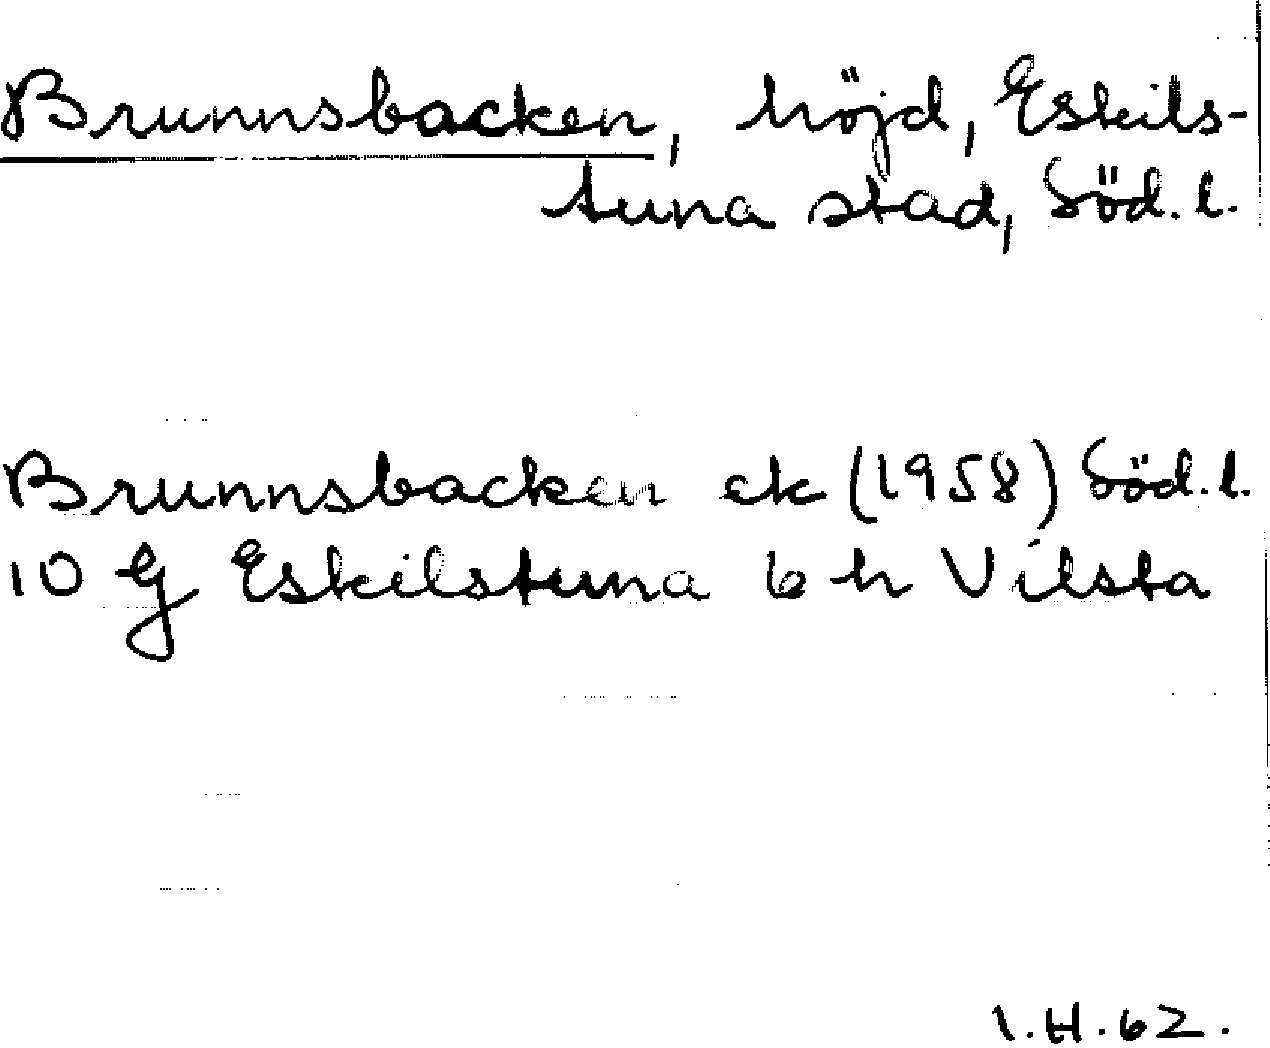 Brunnsbacken, höjd, Eskils-
tuna stad, Söd. l.
Brunnsbacken ek (1958) Söd. l.
10 G Eskilstuna 6 h Vilsta
I.H. 62.